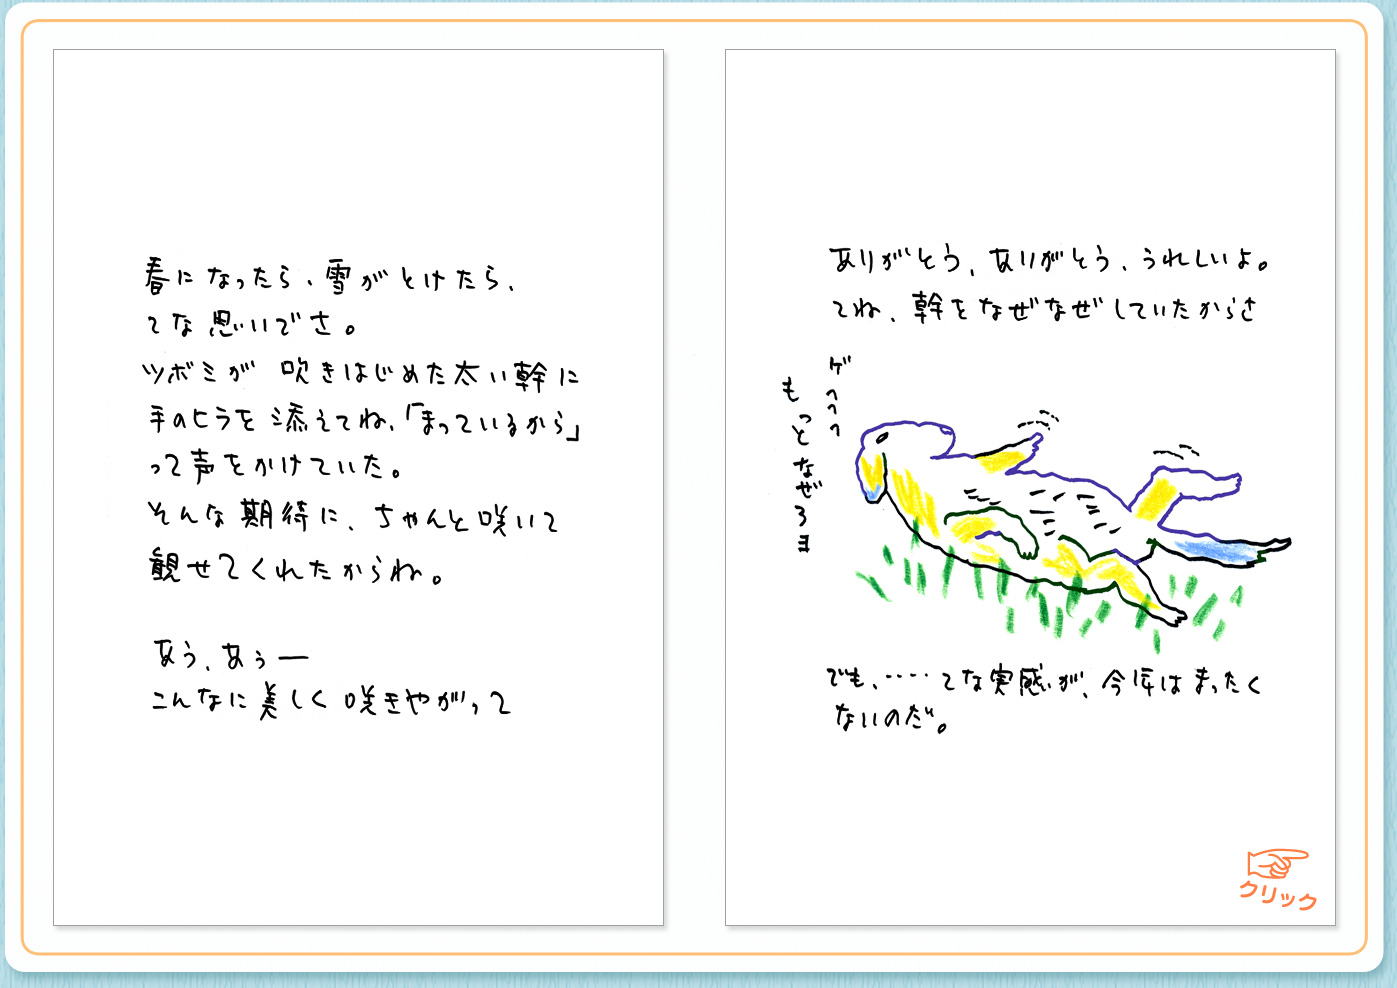 春になったら、雪がとけたら、
てな思いでさ。
ツボミが 吹きはじめた太い幹に
手のヒラを添えてね、「まっているから」
って声をかけていた。
そんな期待に、ちゃんと咲いて
観せてくれたからね。
あう、あぅー
こんなに美しく咲きやがって
ありがとう、ありがとう、うれしいよ。
てね、幹をなぜなぜしていたからさ
ゲへへへ
もっとなぜろま
でも、‥‥てな実感が、今年はまったく
ないのだ。
クリック